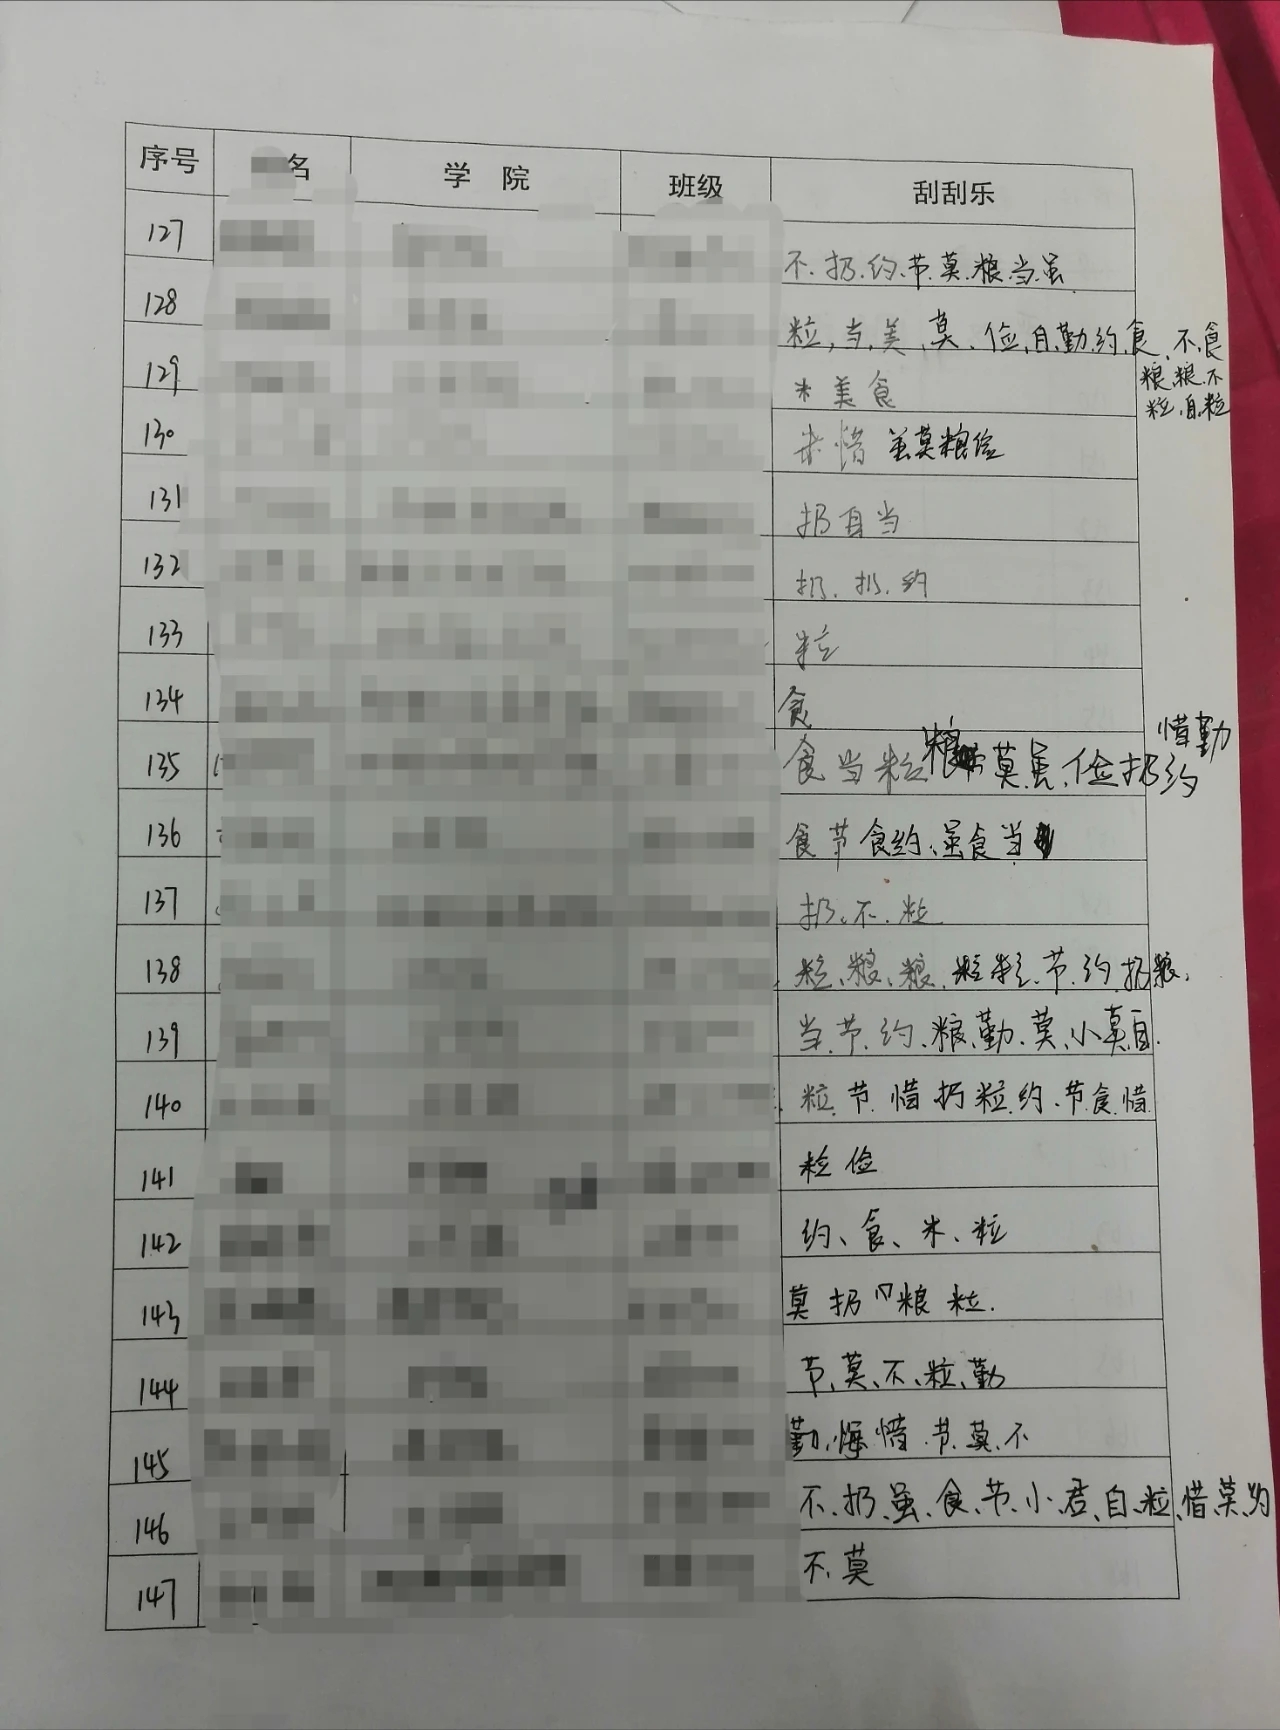 序号 名 学 院 班级 刮刮乐
127 不.扔.约.节.莫.粮.当.虽
128 粒,当,美,莫、俭,自,勤,约,食、不,食
粮,粮,不
粒,自,粒
129 米 美 食
130 米 惜 虽莫粮俭
131 扔自当
132 扔.扔.约
133 粒
134 食
惜勤
135 食当粒粮莫虽、俭扔约
136 食节食约、虽食当
137 扔、不、粒
138 粒、粮、粮、粒粒、节、约、扔粮、
139 当、节、约、粮、勤、莫、小莫自.
140 粒.节.惜扔粒.约.节食惜
141 粒俭
142 约、食、米、粒
143 莫 扔 粮 粒.
144 节、莫、不、粒、勤
145 勤,悔惜.节.莫、不
146 不、扔、虽、食、节、小、君、自、粒、惜、莫、为
147 不、莫